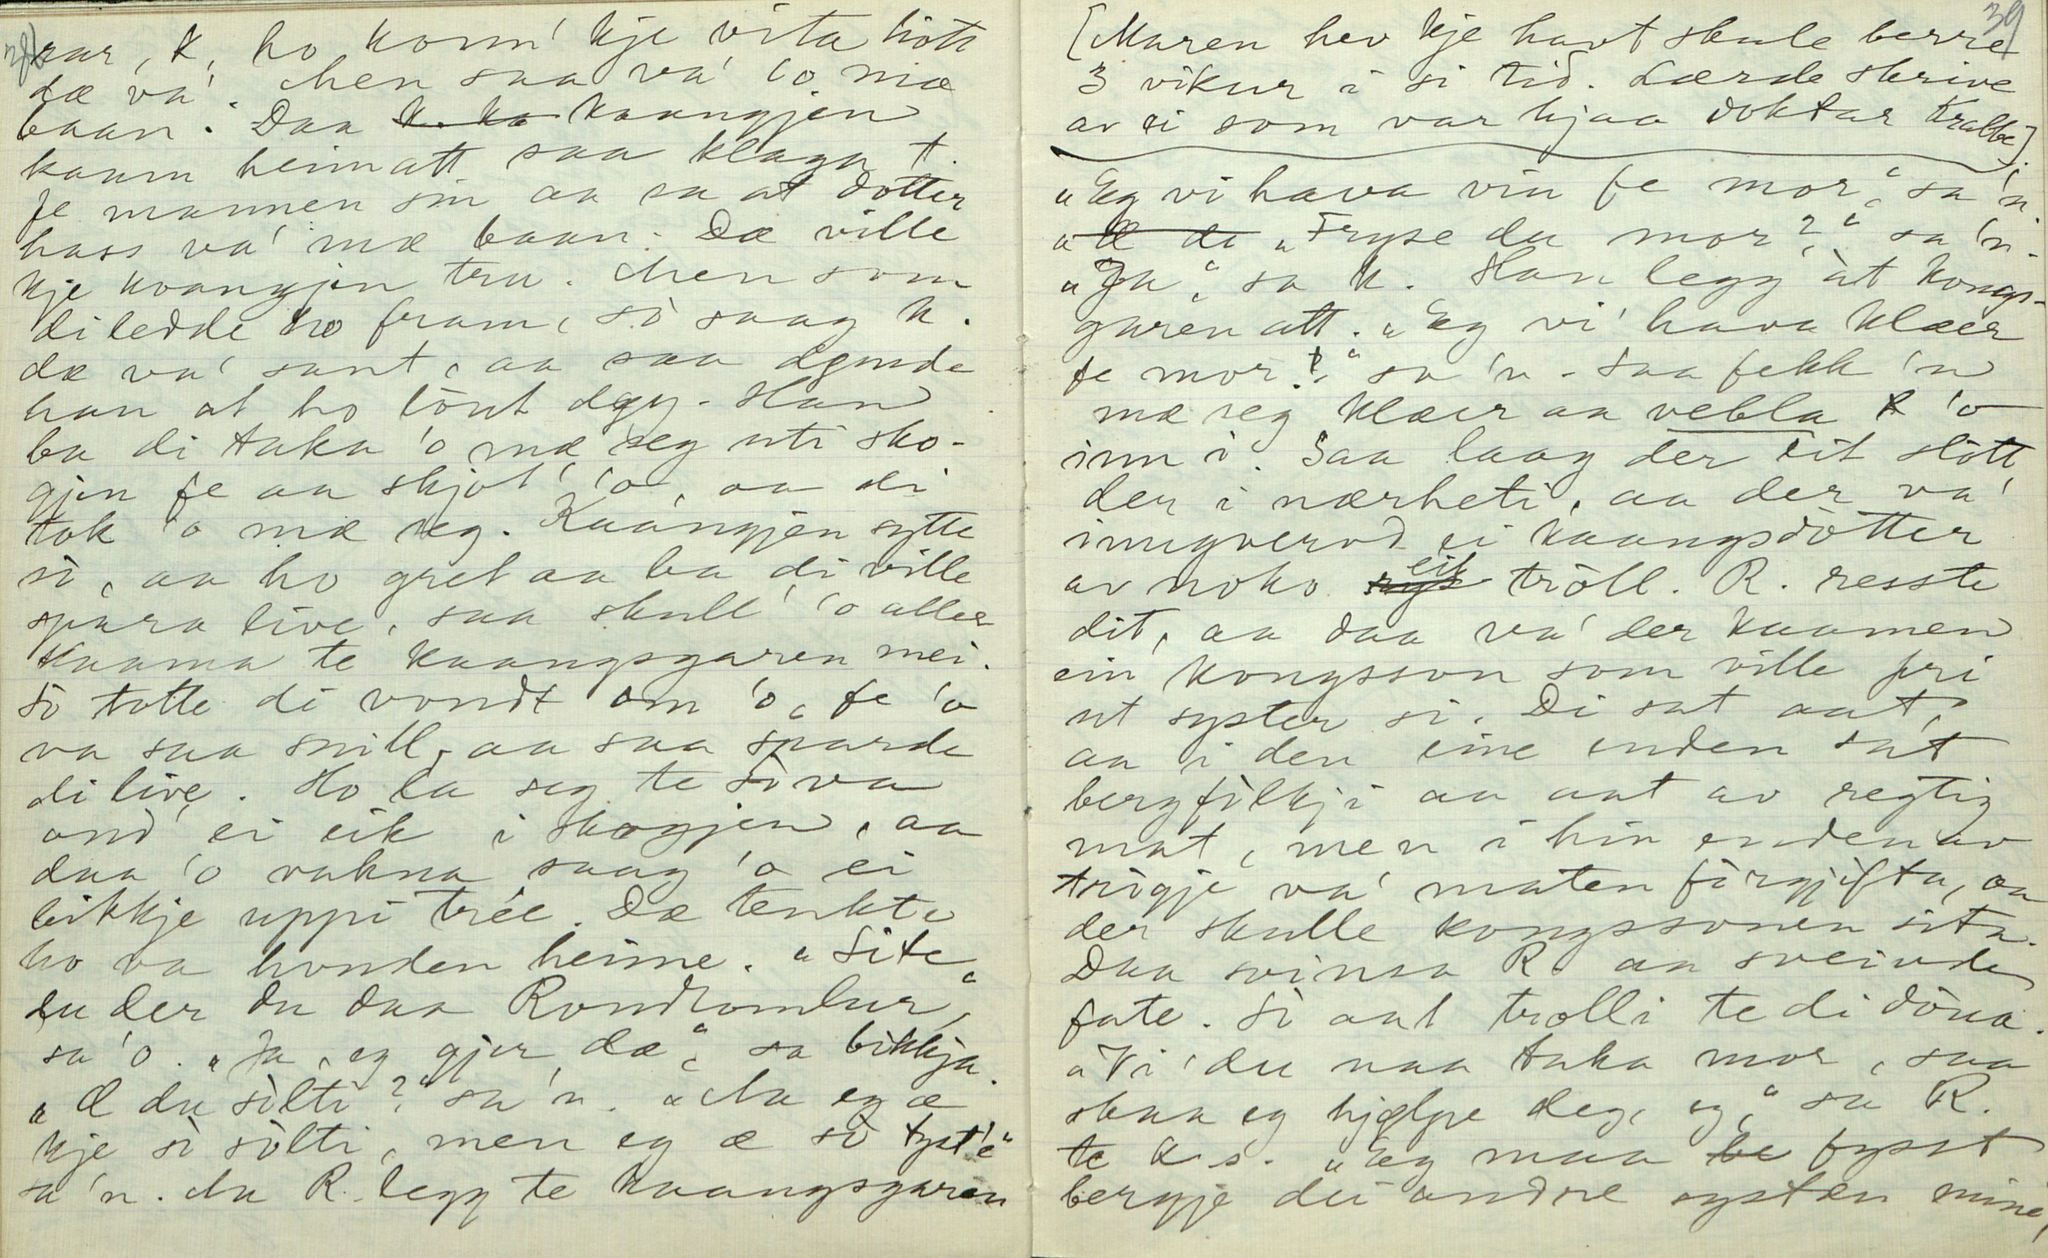 38
rar, K, ho konn' kje vita hòtt
dæ va'. Men saa va' 'o mæ
baan. Daa K. ko kaangjen
kaam heimatt saa klaga +.
fe mannen sin aa sa at dotter
hass va' mæ baan. Dæ ville
kje kaangjen tru. Men som
di ledde ho fram, sò saag K.
dæ va' sant, aa saa dømde
han at ho lònt døy. Han
ba di taka 'o mæ seg uti sko-
gjen fe aa skjot' 'o, aa di
tok 'o mæ seg. Kaangjen sytte
sò, aa ho gret aa ba di ville
spara live, saa skull' 'o aller
kaama te kaangsgaren mei.
Sò totte di vondt om 'o, fe 'o
va saa snill, aa saa sparde
di live. Ho la seg te sòva
ond' ei eik i skogjen, aa
daa 'o vakna saag 'o ei
bikkje uppi tree. Dæ tenkte
ho va honden heime. „Site
du der du daa Rondtombur,"
sa 'o. „Ja, eg gjer dæ", sa bikkja.
„Æ du sòlti?" sa 'n. „Na eg æ
kje sò sòlti, men eg æ sò tyst'e"
sa 'n. Na R. legg te kaangsgaren
39
[Maren hev kje havt skule berre
3 vikur i si tid. Lærde skrive
av si som var hjaa doktar Krabbe].
„Eg vi hava vin fe mor," sa 'n.
„Æ du „Fryse du mor?" sa 'n.
„Ja," sa K. Han legg àt kongs-
garen att. „Eg vi' hava klæer
fe mor!," sa 'n. Saa fekk 'n
mæ seg klæer aa vebla 'o
inn i. Saa laag der eit slòtt
der i nærheti, aa der va'
innkvervd ei kaangsdòtter
av noko eit tròll. R. resste
dit, aa daa va' der kaamen
ein kongsson som ville fri
ut syster si. Di sat aat,
aa i den eine enden sat
bergfòlkji aa aat av regtig
mat, men i hin enden av
trògje va' maten fòrgjifta, aa
der skulle kongssonen sita.
Daa svinsa R. aa sveivde
fate. Sò aat trolli te di dòua.
„Vi' du naa taka mor, saa
skaa eg hjelpe deg, eg," sa R.
te K.s. „Eg maa be fysst
bergje dei andre systan mine,